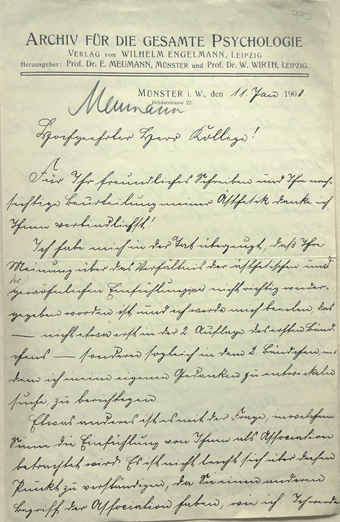 ARCHIV FÜR DIE GESAMTE PSYCHOLOGIE
VERLAG von WILHELM ENGELMANN, LEIPZIG
Herausgeber: Prof. Dr. E. MEUMANN, MÜNSTER und Prof. Dr. W. WIRTH, LEIPZIG.
MÜNSTER i. W., den 11. Jan. 190
Meumann
Hochgeehrter Herr Kollege!
Für Ihr freundliches Schreiben und Ihre nach-
sichtige Beurteilung meiner Ästhetik danke ich
Ihnen verbindlichst!
Ich habe mich in der Tat überzeugt, daß Ihre
Meinung über das Verhältnis der ästhetischen und
gewöhnlichen Einfühlung nicht richtig wieder-
gegeben worden ist und ich werde mich beeilen das
— nicht etwa erst in der 2. Auflage des ersten Bänd-
chens — sondern sogleich in dem 2. Bändchen, in
dem ich meine eigenen Gedanken zu entwickeln
suche, zu berichtigen.
Etwas anderes ist es mit der Frage, in welchem
Sinne die Einfühlung von Ihnen als Association
betrachtet wird. Es ist nicht leicht sich über diesen
Punkt zu verständigen, da Sie einen anderen
Begriff der Association haben, wie ich